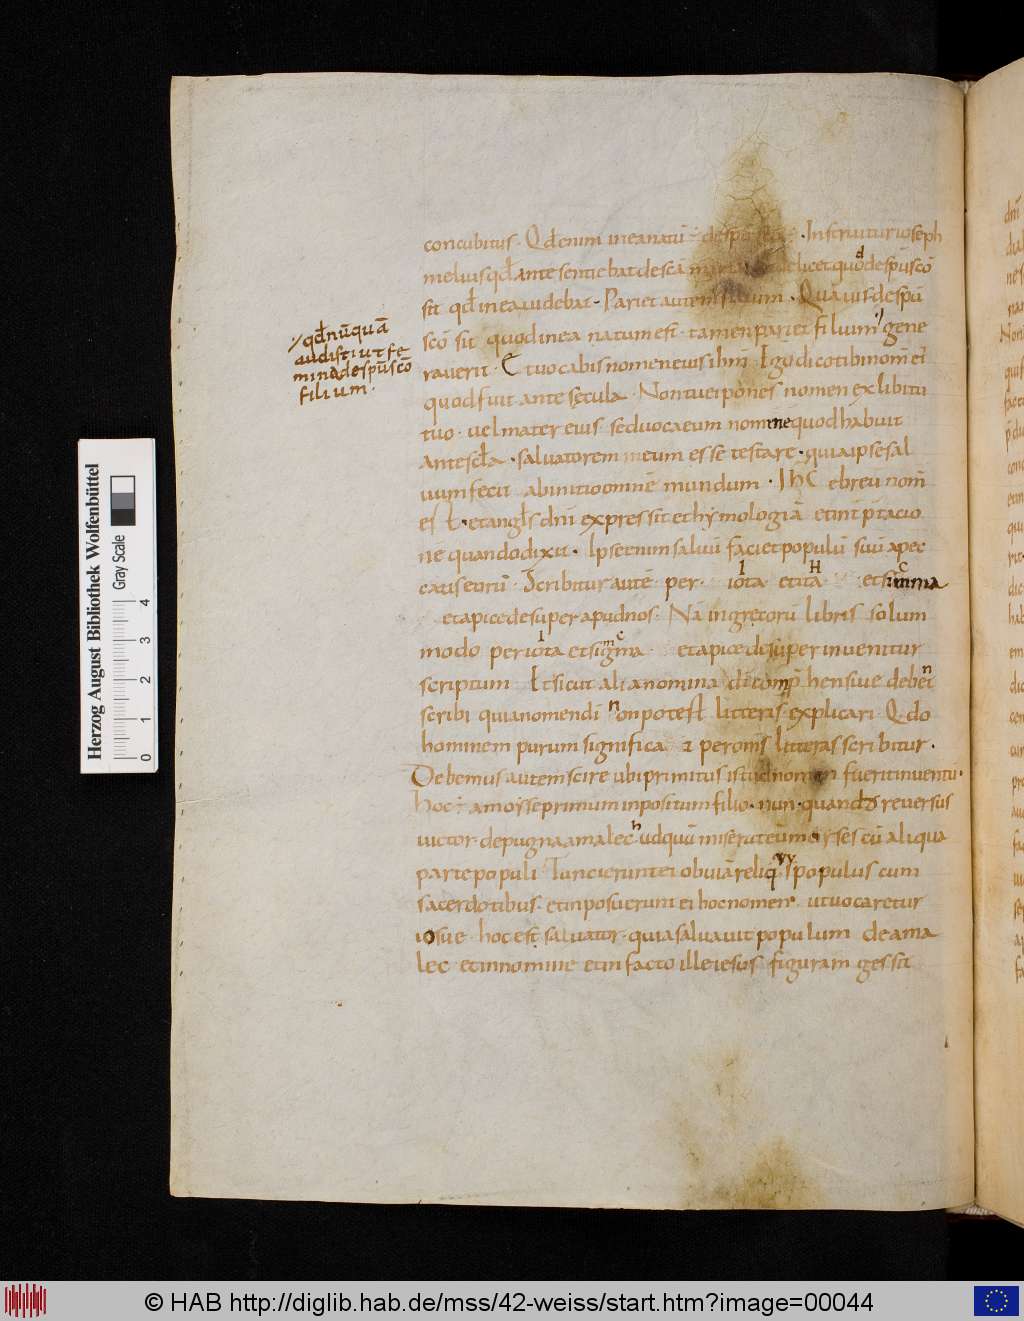 concubitus · Qd enim in ea natū ÷ de spū scō ÷ · Instruitur ioseph
melius qd̄ ante sentiebat de scā maria · Et licet quod de spū scō
sit qd̄ in ea videbat · Pariet autem filium · Quavis de spū
scō sit quod in ea natum est · tamen pariet filium gene
raverit · Et vocabis nomen eius ihm̄ · Ego dico tibi nom̄ ei
quod fuit ante sęcula · Non tu ei pones nomen ex libitu
tuo · vel mater eius sed voca eum nomine quod habuit
ante scl̄a · salvatorem meum esse testare · quia ipse sal
vum fecit ab initio omnē mundum · IHC ebreu nom̄
est · et angl̄s dn̄i expressit ethymologiā et interp̄tacio
nē quando dixit · Ipse enim salvū faciet populū suū a pec
catis eorū · Scribitur autē per · iota et ita et simma
et apice desuper apud nos · Nā in gręcorū libris solum
modo per iota et sigma et apice desuper invenitur
scriptum Et sicut alia nomina di comp̄hensiue debent
scribi quia nomen di non potest litteris explicari Qdo
hominem purum significat per omīs litteras scribitur ·
Debemus autem scire ubi primitus istud nomen fuerit inventū ·
hoc ÷ a moyse primum inpositum filio · nun · quando reversus
victor de pugna amalech ad quā miserat eum moyses cū aliqua
parte populi Tunc ierunt ei obviā reliqus populus cum
sacerdotibus · et inposuerunt ei hoc nomen · ut vocaretur
iosue · hoc est salvator · quia salvavit populum de ama
lec et in nomine et in facto ille iesus figuram gessit
·/ qd̄ nūquā
audisti ut fe
mina de spū scō
filium ·
Herzog August Bibliothek Wolfenbüttel
Gray Scale
0 1 2 3 4
© HAB http://diglib.hab.de/mss/42-weiss/start.htm?image=00044